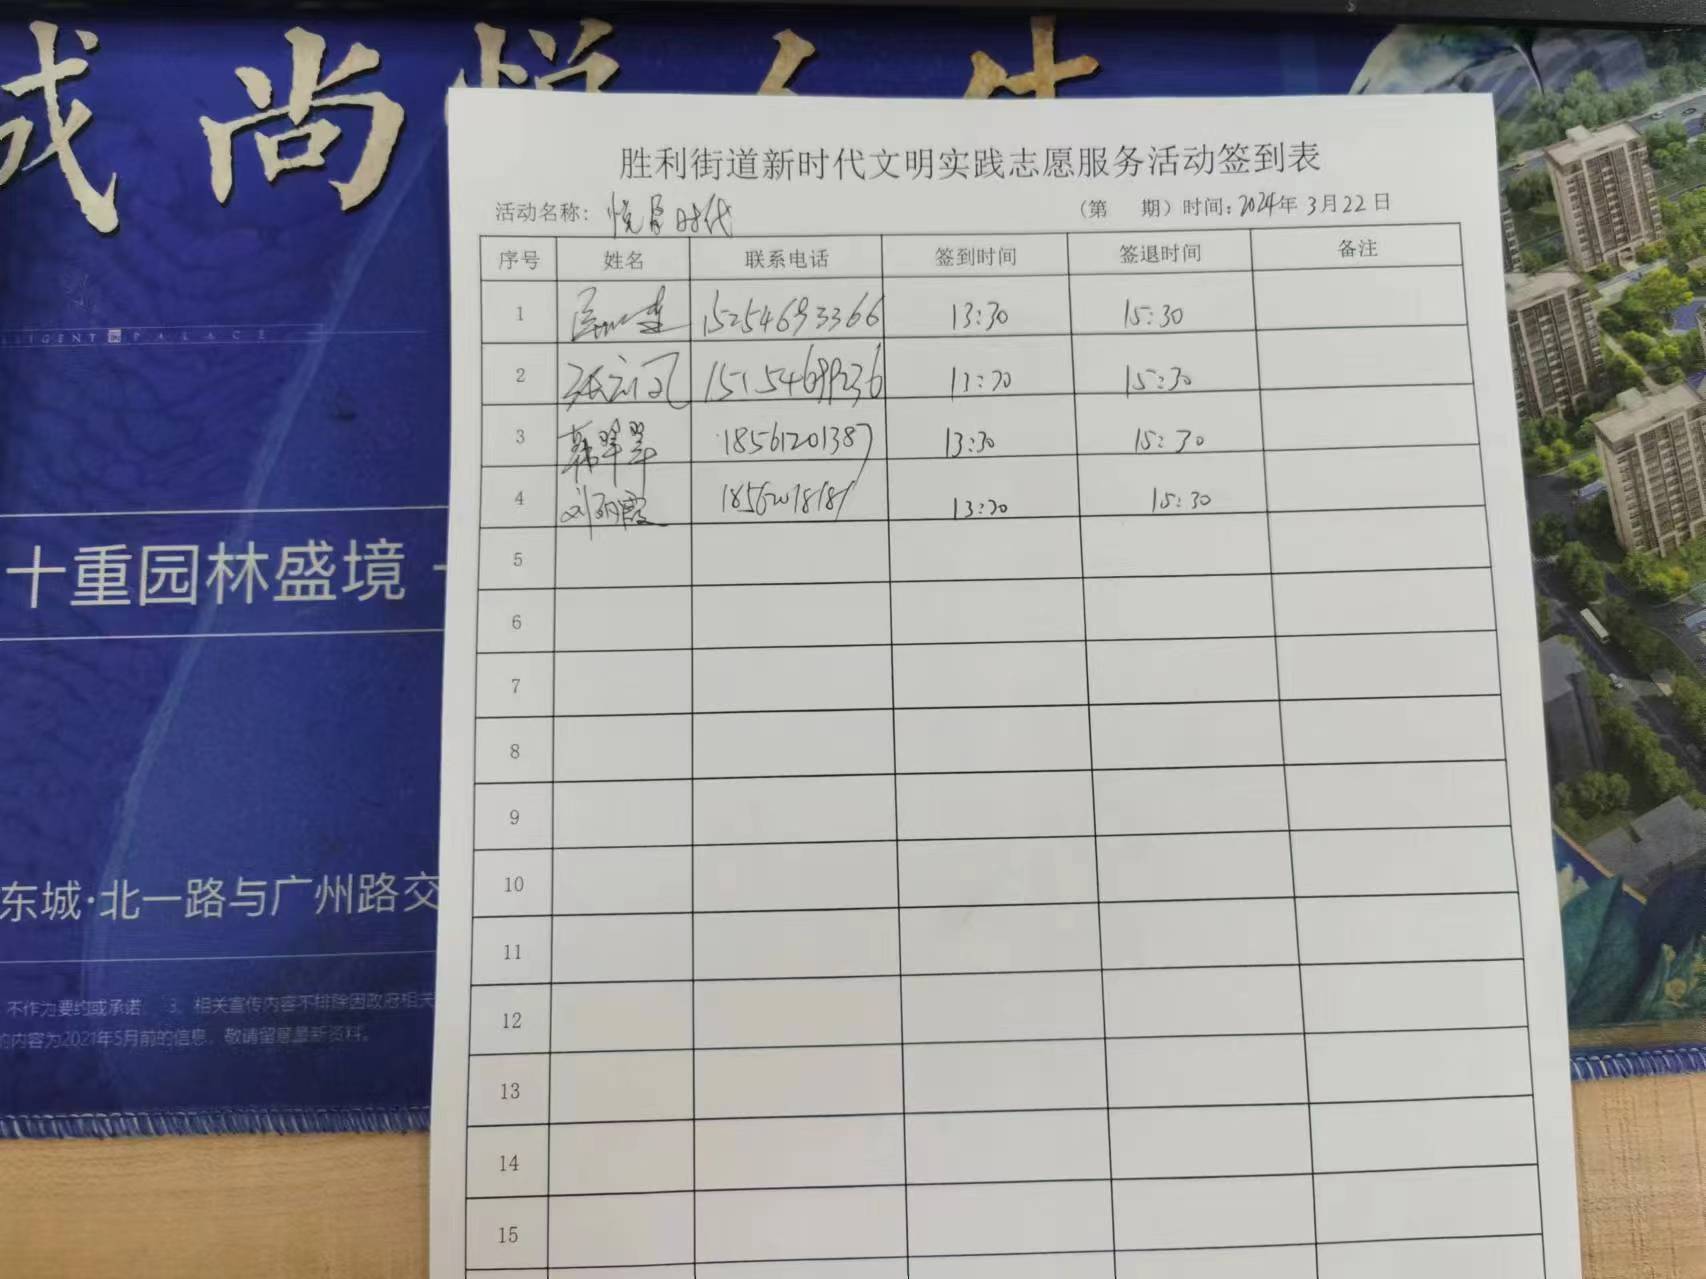 成尚悦人生
LLIGENT PALACE
十重园林盛境
东城·北一路与广州路交
不作为要约或承诺; 3、相关宣传内容不排除因政府相关
的内容为2021年5月前的信息, 敬请留意最新资料。
胜利街道新时代文明实践志愿服务活动签到表
活动名称: 悦享时代 (第 期) 时间: 2024年 3月22日
序号 姓名 联系电话 签到时间 签退时间 备注
1 15254693366 13:30 15:30
2 13:30 15:30
3 翠翠 18561201387 13:30 15:30
4 刘丽霞 13:30 15:30
5
6
7
8
9
10
11
12
13
14
15